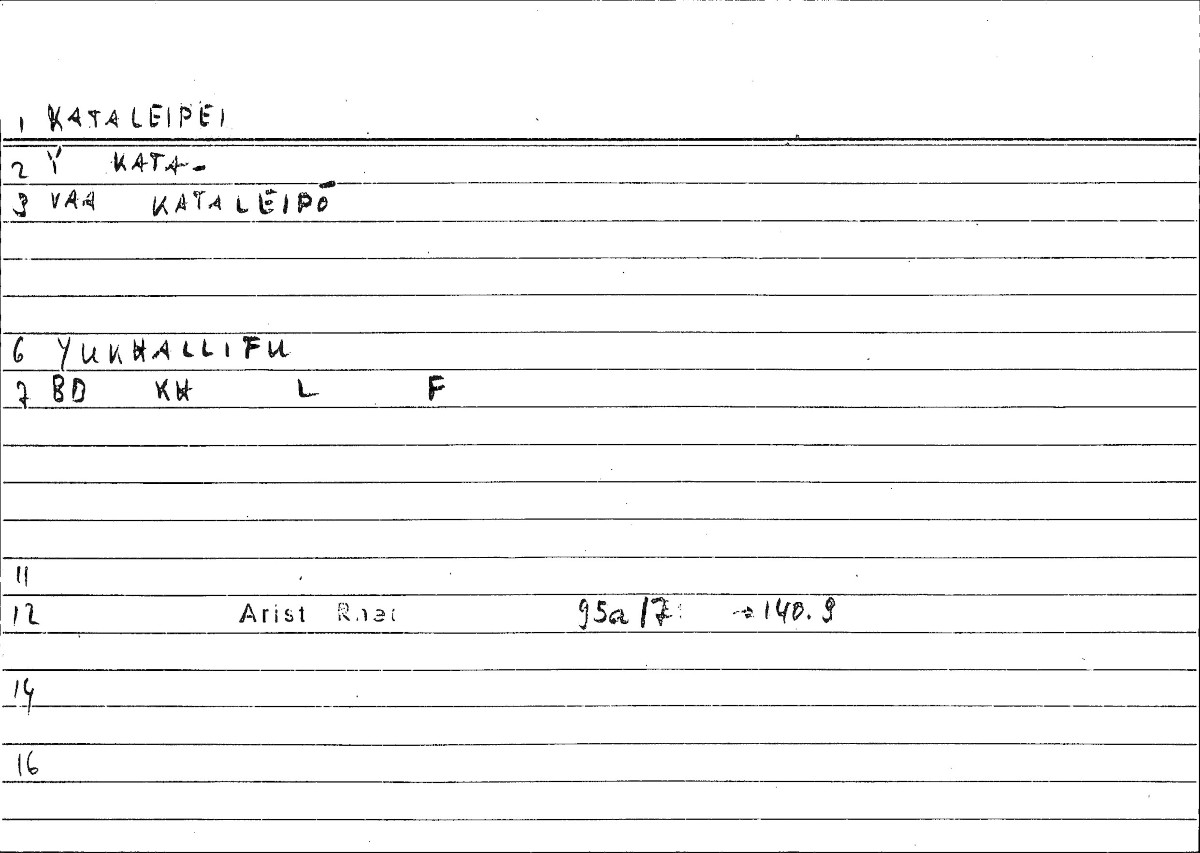 1 KATALEIPEI
2 Y KATA-
3 VAA KATALEIPŌ
6 YUKHALLIFU
7 BD KH L F
11
12 Arist Rhet 95a/7 → 140.9
14
16